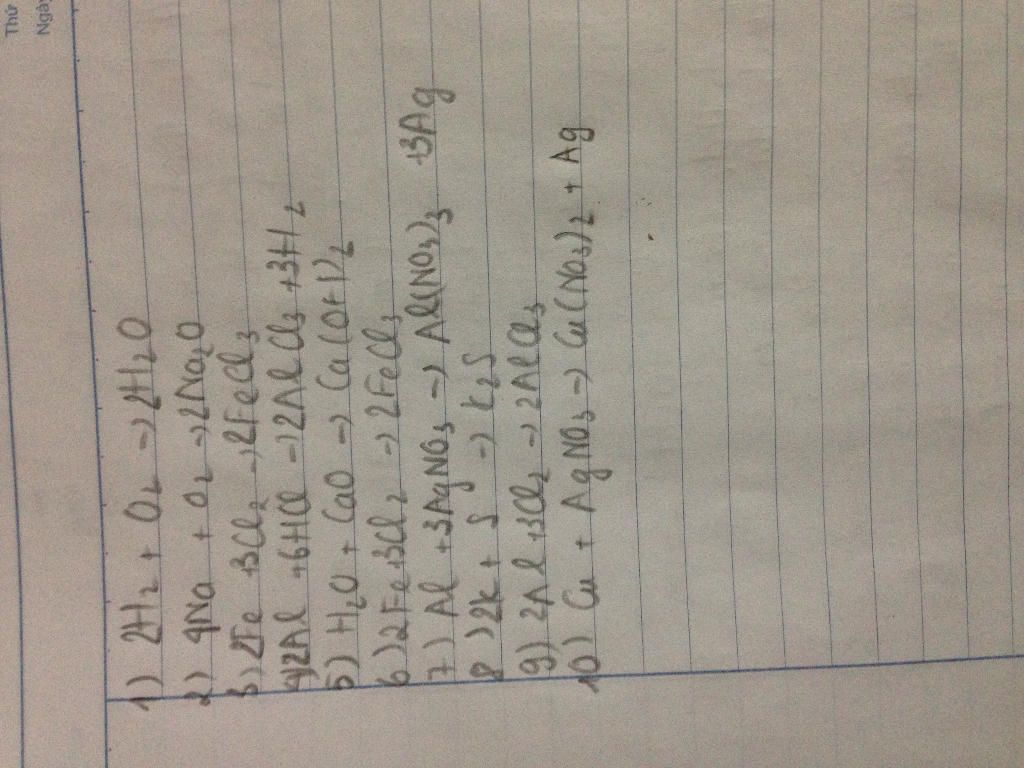 Thứ
Ngày
1) 2H2 + O2 → 2H2O
2) 4Na + O2 → 2Na2O
3) 2Fe + 3Cl2 → 2FeCl3
4) 2Al + 6HCl → 2AlCl3 + 3H2
5) H2O + CaO → Ca(OH)2
6) 2Fe + 3Cl2 → 2FeCl3
7) Al + 3AgNO3 → Al(NO3)3 + 3Ag
8) 2K + S → K2S
9) 2Al + 3Cl2 → 2AlCl3
10) Cu + AgNO3 → Cu(NO3)2 + Ag